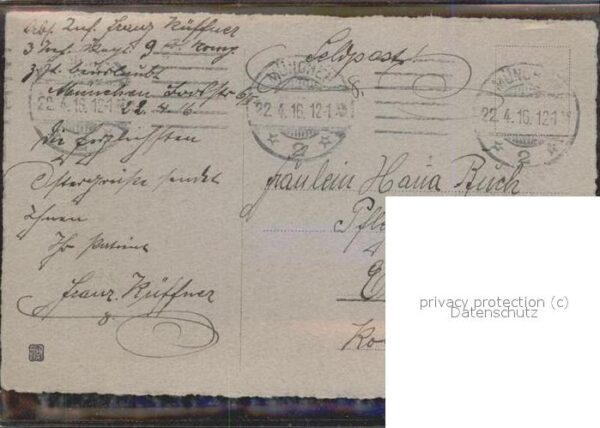 Abs. Inf. Franz Küffner
3 Inf. Regt. 9 Komp.
z. Zt. beurlaubt
München
22.4.16
Die herzlichsten
Ostergrüße sendet
Ihnen
Ihr Patient
Franz Küffner
Feldpost
MÜNCHEN
22.4.16. 12-1
2
MÜNCHEN
22.4.16. 12-1
2
22.4.16. 12-1
Fräulein Maria Buch
privacy protection (c)
Datenschutz